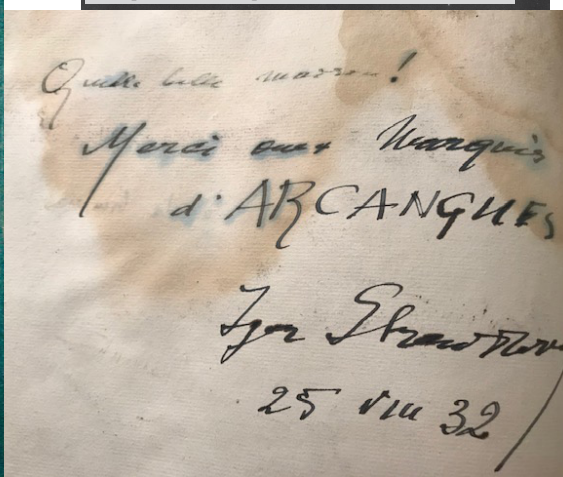 Quelle belle maison!
Merci aux Marquis
d'ARCANGUES
Igor Strawinsky
25 VIII 32